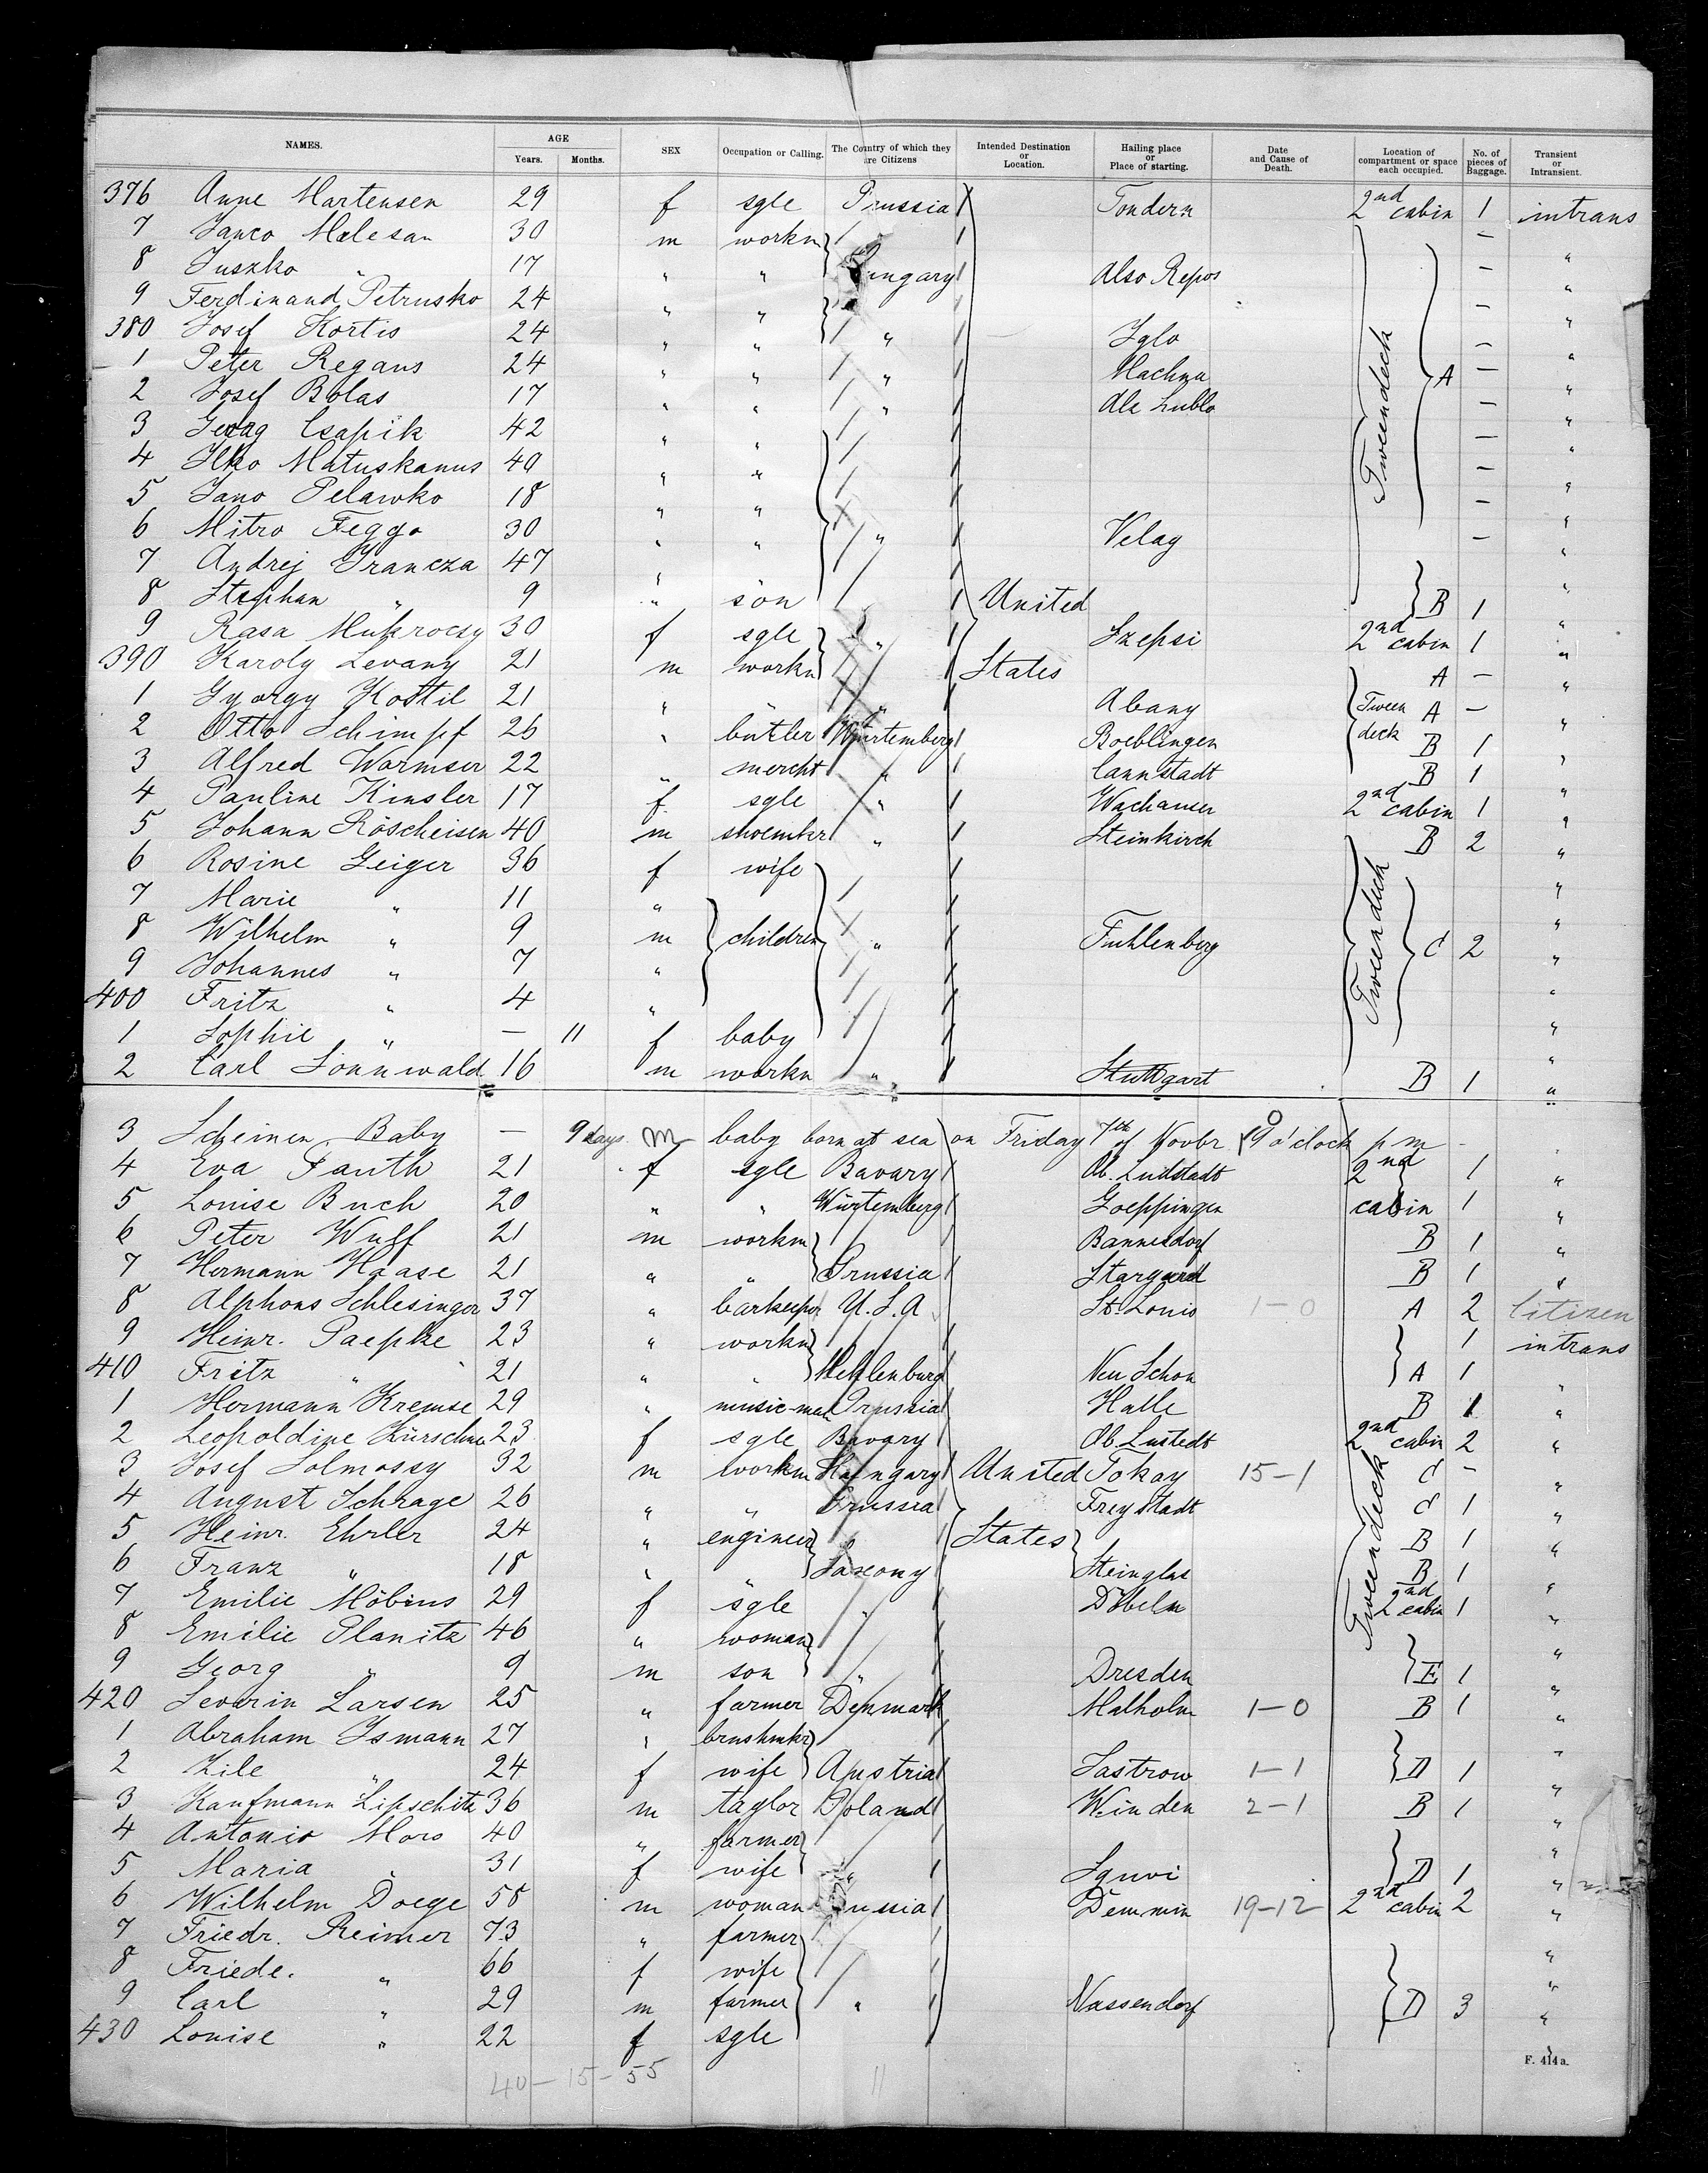 NAMES. AGE Years. Months. SEX Occupation or Calling. The Country of which they are Citizens Intended Destination or Location. Hailing place or Place of starting. Date and Cause of Death. Location of compartment or space each occupied. No. of pieces of Baggage. Transient or Intransient.
376 Anne Martensen 29 f sgle Prussia Tondern 2nd cabin 1 intrans
7 Janco Malesan 30 m workm — "
8 Juszko " 17 " " Hungary Also Repos — "
9 Ferdinand Petrusko 24 " " " — "
380 Josef Kortis 24 " " " Iglo — "
1 Peter Regans 24 " " " Hachna Tweendeck A — "
2 Josef Bolas 17 " " " Ale Lublo — "
3 Georg Csapik 42 " " — "
4 Ilko Matuskanus 40 " " — "
5 Jano Pelawko 18 " " — "
6 Mitro Feggo 30 " " " Velag — "
7 Andrej Francza 47 " "
8 Stephan " 9 " son United B 1 "
9 Rasa Mukroczy 30 f sgle " Szepsi 2nd cabin 1 "
390 Karoly Levany 21 m workm States A — "
1 Gyorgy Kostil 21 " " " Abany Tween deck A — "
2 Otto Schimpf 26 " butler Würtemberg Boeblingen B 1 "
3 Alfred Wormser 22 " mercht " Cannstadt B 1 "
4 Pauline Kinsler 17 f sgle " 2nd cabin 1 "
5 Johann Röscheisen 40 m shoemkr " Steinkirch B 2 "
6 Rosine Geiger 36 f wife "
7 Marie " 11 " "
8 Wilhelm " 9 m children " Fuhlenberg Tweendeck C 2 "
9 Johannes " 7 " "
400 Fritz " 4 " "
1 Sophie " — 11 f baby "
2 Carl Sonnwald 16 m workm " Stuttgart B 1 "
3 Baby — 9 days m baby born at sea on Friday 7th of Novbr 9 o'clock p m -
4 Eva Fauth 21 f sgle Bavary Ob. Ludstadt 2nd 1 "
5 Louise Buch 20 " " Würtemberg Goeppingen cabin 1 "
6 Peter Wulf 21 m workm Bannesdorf B 1 "
7 Hermann Haase 21 " " Prussia Stargard B 1 "
8 Alphons Schlesinger 37 " barkeeper U.S.A St. Louis 1-0 A 2 Citizen
9 Heinr. Paepke 23 " workm 1 intrans
410 Fritz " 21 " " Meklenburg Neu Schon A 1 "
1 Hermann Kremse 29 " music-mak Prussia Halle B 1 "
2 Leopoldine Kürschne 23 f sgle Bavary Ob. Lustedt 2nd cabin 2 "
3 Josef Solmossy 32 m workm Hungary United Tokay 15-1 C - "
4 August Schrage 26 " " Prussia Freystadt C 1 "
5 Heinr. Ehrler 24 " engineer States Tweendeck B 1 "
6 Franz " 18 " " Saxony Steinglas B 1 "
7 Emilie Möbius 29 f sgle " Döbeln 2nd cabin 1 "
8 Emilie Planitz 46 " woman "
9 Georg " 9 m son " Dresden E 1 "
420 Severin Larsen 25 " farmer Denmark Malholm 1-0 B 1 "
1 Abraham Ismann 27 " brushmkr "
2 Zile " 24 f wife Austria Sastrow 1-1 D 1 "
3 Kaufmann Lipschitz 36 m taylor Poland Winden 2-1 B 1 "
4 Antonio Moro 40 " farmer "
5 Maria " 31 f wife " D 1 "
6 Wilhelm Doege 58 m woman Prussia Demmin 19-12 2nd cabin 2 "
7 Friedr. Reimer 73 " farmer "
8 Friede. " 66 f wife "
9 Carl " 29 m farmer " Nassendorf D 3 "
430 Louise " 22 f sgle "
40-15-55 11
F. 414a.